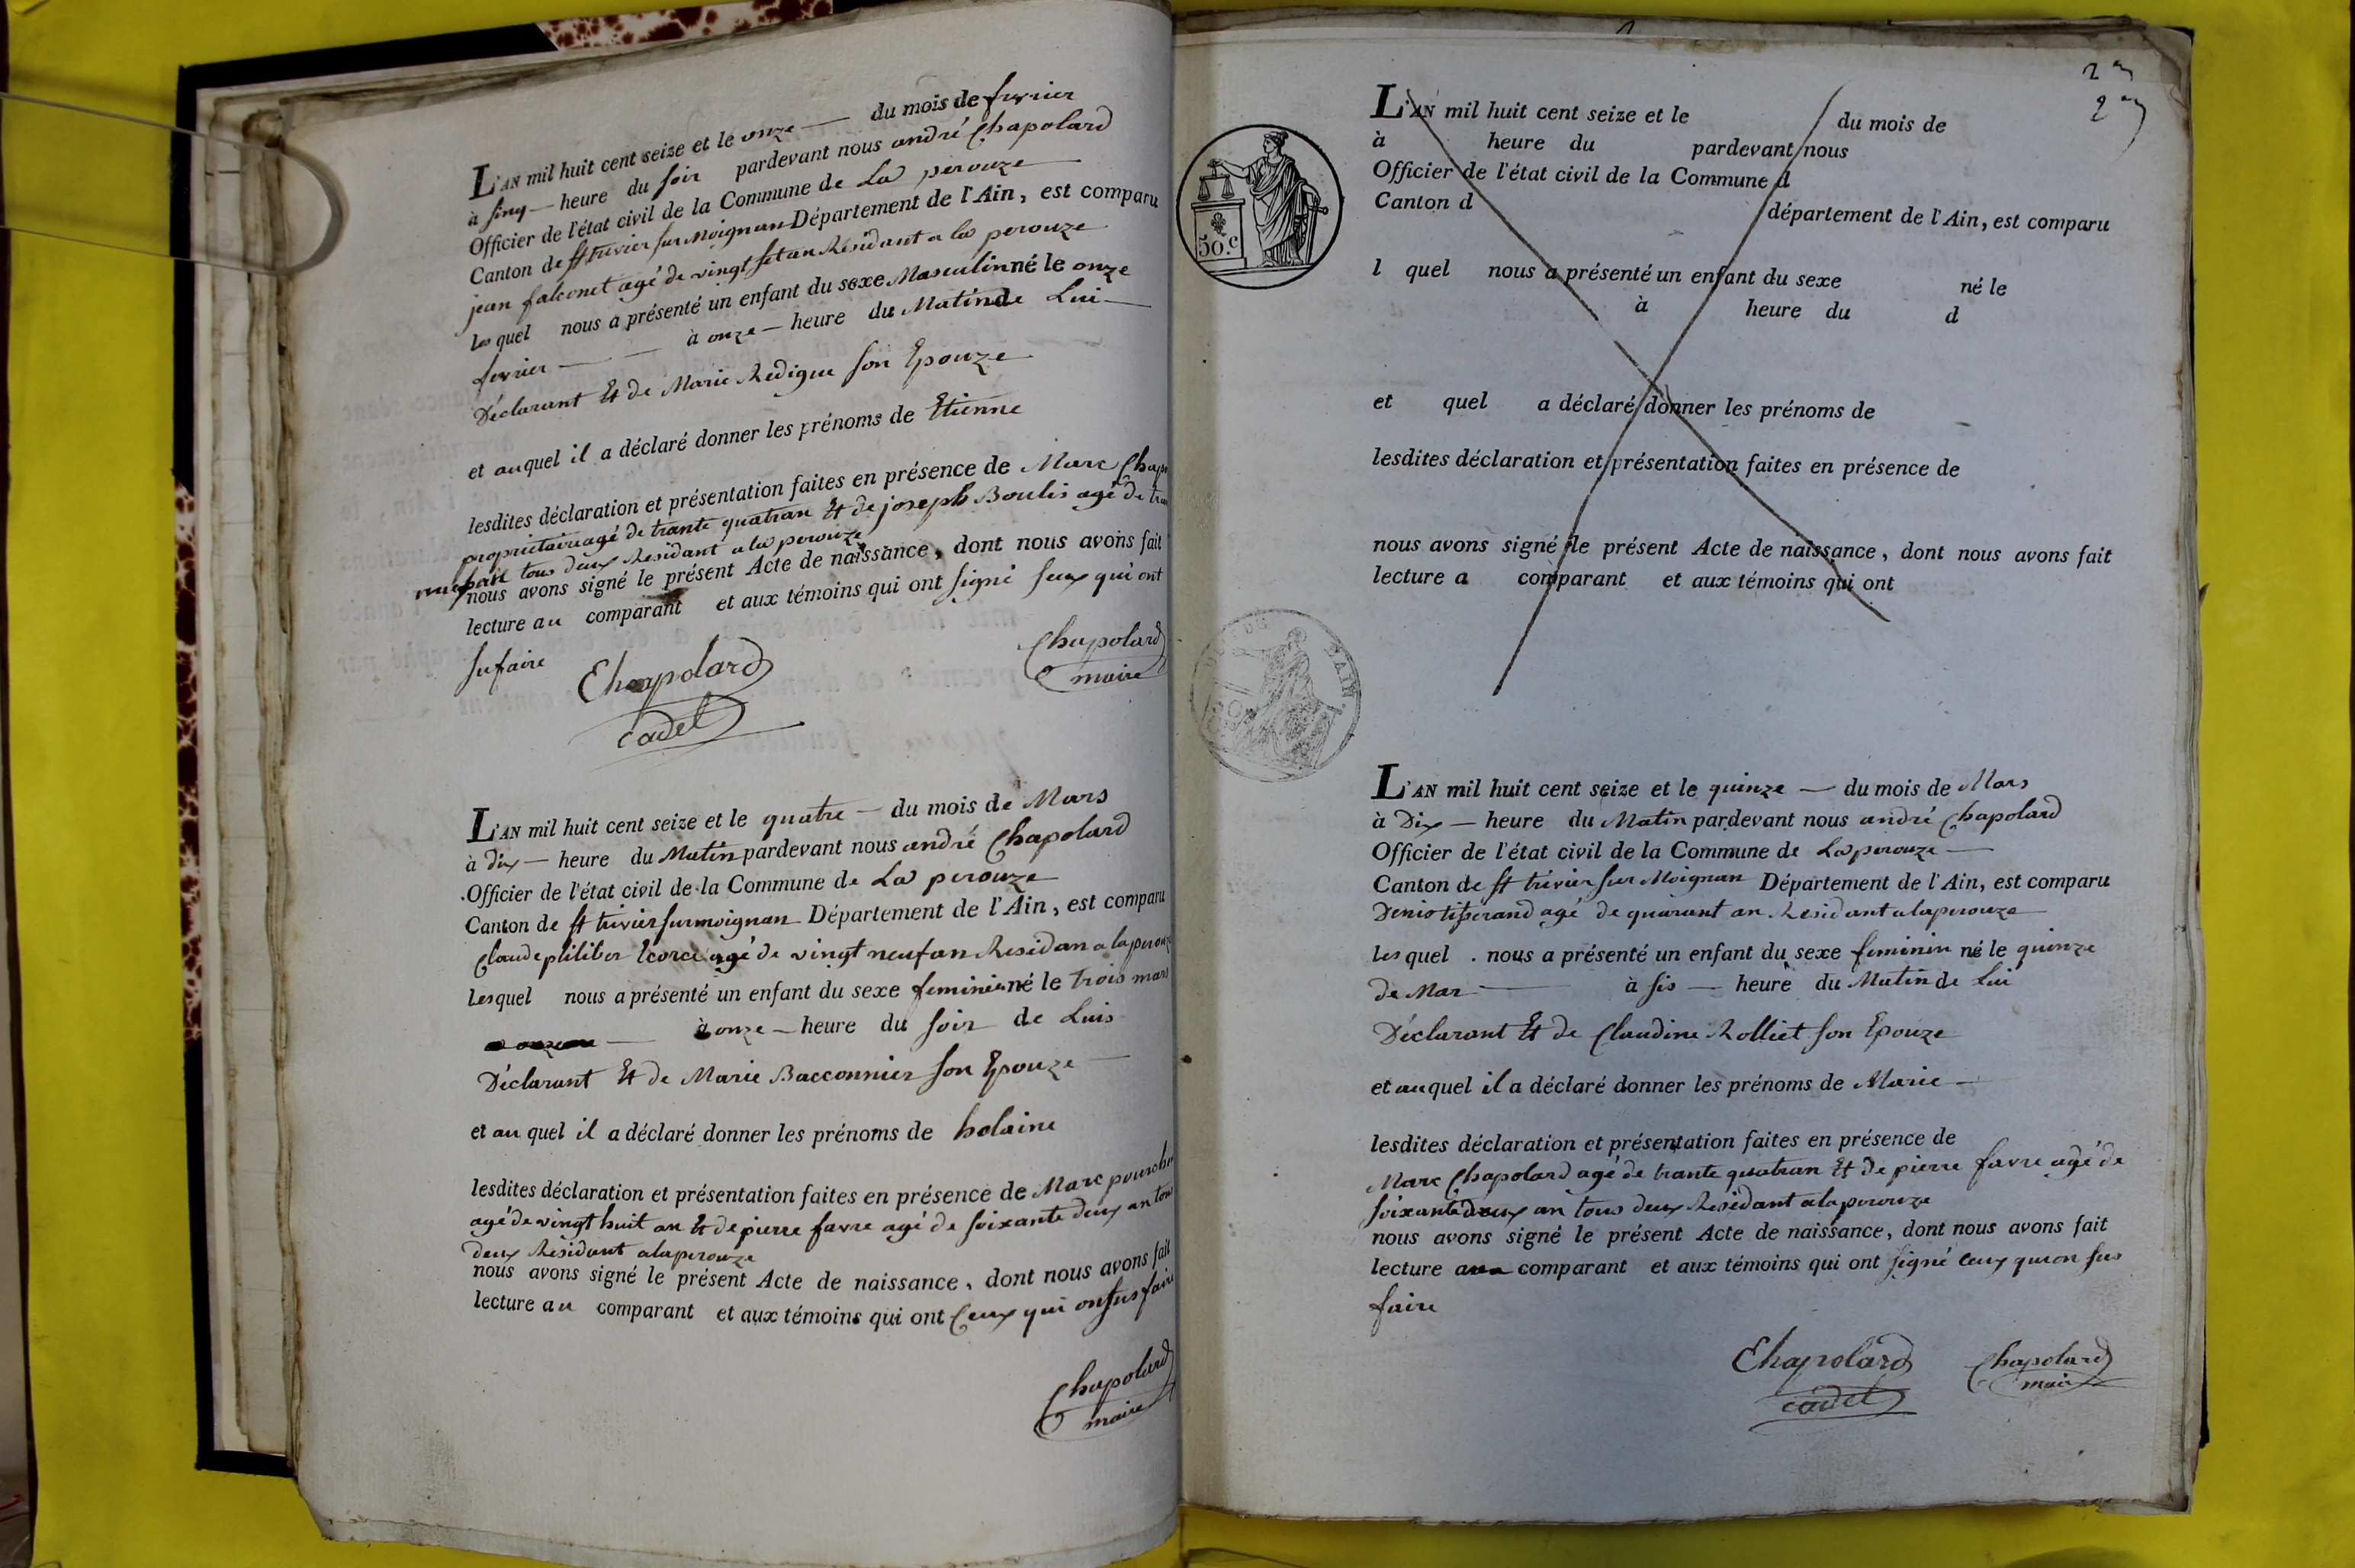 L'AN mil huit cent seize et le onze — du mois de fevrier
à sinq — heure du soir pardevant nous andré Chapolard
Officier de l'état civil de la Commune de La perouze
Canton de st trivier sur Moignan Département de l'Ain, est comparu
jean falconet agé de vingt set an Résidant a la perouze
les quel nous a présenté un enfant du sexe Masculin né le onze
fevrier — à onze — heure du Matin de Lui —
Déclarant Et de Marie Redigue son Epouze
et au quel il a déclaré donner les prénoms de Etienne
lesdites déclaration et présentation faites en présence de Marc Chap
propriétaire agé de trante quatran Et de joseph Boulis agé de
tous deux Residant a la perouze
nous avons signé le présent Acte de naissance, dont nous avons fait
lecture au comparant et aux témoins qui ont signé seux qui ont
su faire
Chapolard
maire
Chapolard
cadet
L'AN mil huit cent seize et le quatre — du mois de Mars
à dix — heure du Matin pardevant nous andré Chapolard
Officier de l'état civil de la Commune de La perouze
Canton de st trivier sur moignan Département de l'Ain, est comparu
Claude philiber agé de vingt neuf an Residan a la perouze
les quel nous a présenté un enfant du sexe feminin né le trois mars
à onze — heure du soir de Luis
Déclarant Et de Marie Bacconnier son Epouze —
et au quel il a déclaré donner les prénoms de holaine
lesdites déclaration et présentation faites en présence de Marc
agé de vingt huit an Et de pierre favre agé de soixante deux an tous
deux Residant a la perouze
nous avons signé le présent Acte de naissance, dont nous avons fait
lecture au comparant et aux témoins qui ont Ceux qui on sus faire
Chapolard
maire
2
2
L'AN mil huit cent seize et le du mois de
à heure du pardevant nous
Officier de l'état civil de la Commune d
Canton d département de l'Ain, est comparu
l quel nous a présenté un enfant du sexe né le
à heure du d
et quel a déclaré donner les prénoms de
lesdites déclaration et présentation faites en présence de
nous avons signé le présent Acte de naissance, dont nous avons fait
lecture a comparant et aux témoins qui ont
50.c
AIN
L'AN mil huit cent seize et le quinze — du mois de Mars
à Dix — heure du Matin pardevant nous andré Chapolard
Officier de l'état civil de la Commune de La perouze —
Canton de st trivier sur Moignan Département de l'Ain, est comparu
Denis tisserand agé de quarant an Residant a la perouze
les quel nous a présenté un enfant du sexe feminin né le quinze
de Mar — à sis — heure du Matin de Lui
Déclarant Et de Claudine Rolliet son Epouze
et au quel il a déclaré donner les prénoms de Marie —
lesdites déclaration et présentation faites en présence de
Marc Chapolard agé de trante quatran Et de pierre favre agé de
soixante deux an tous deux Residant a la perouze
nous avons signé le présent Acte de naissance, dont nous avons fait
lecture au comparant et aux témoins qui ont signé Ceux qui on sus
faire
Chapolard
cadet
Chapolard
maire